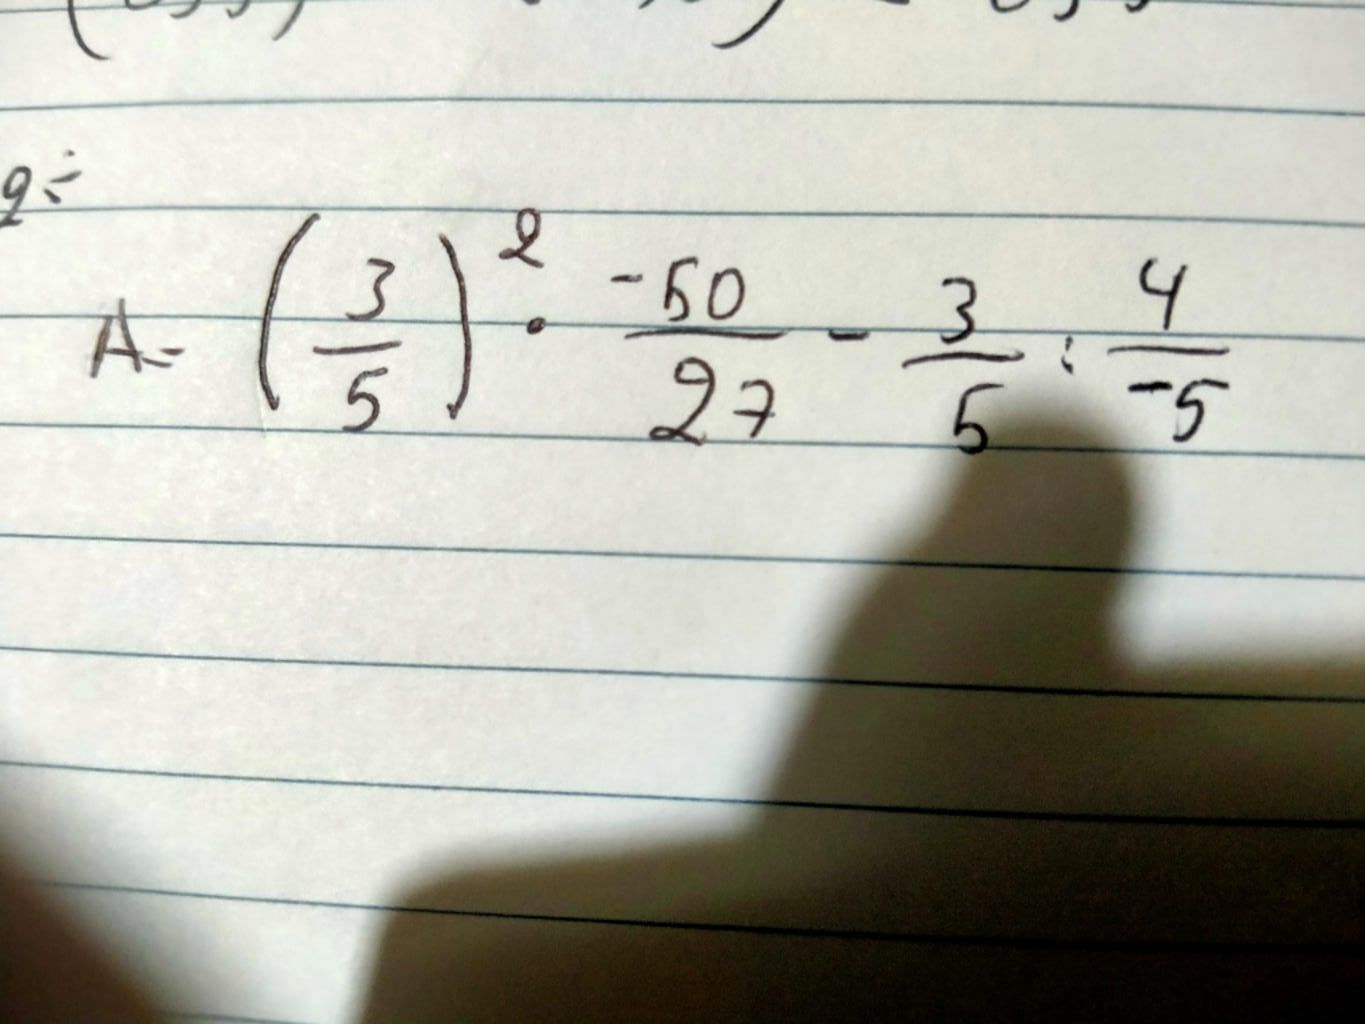 A = (3/5)² · -50/27 - 3/5 : 4/-5